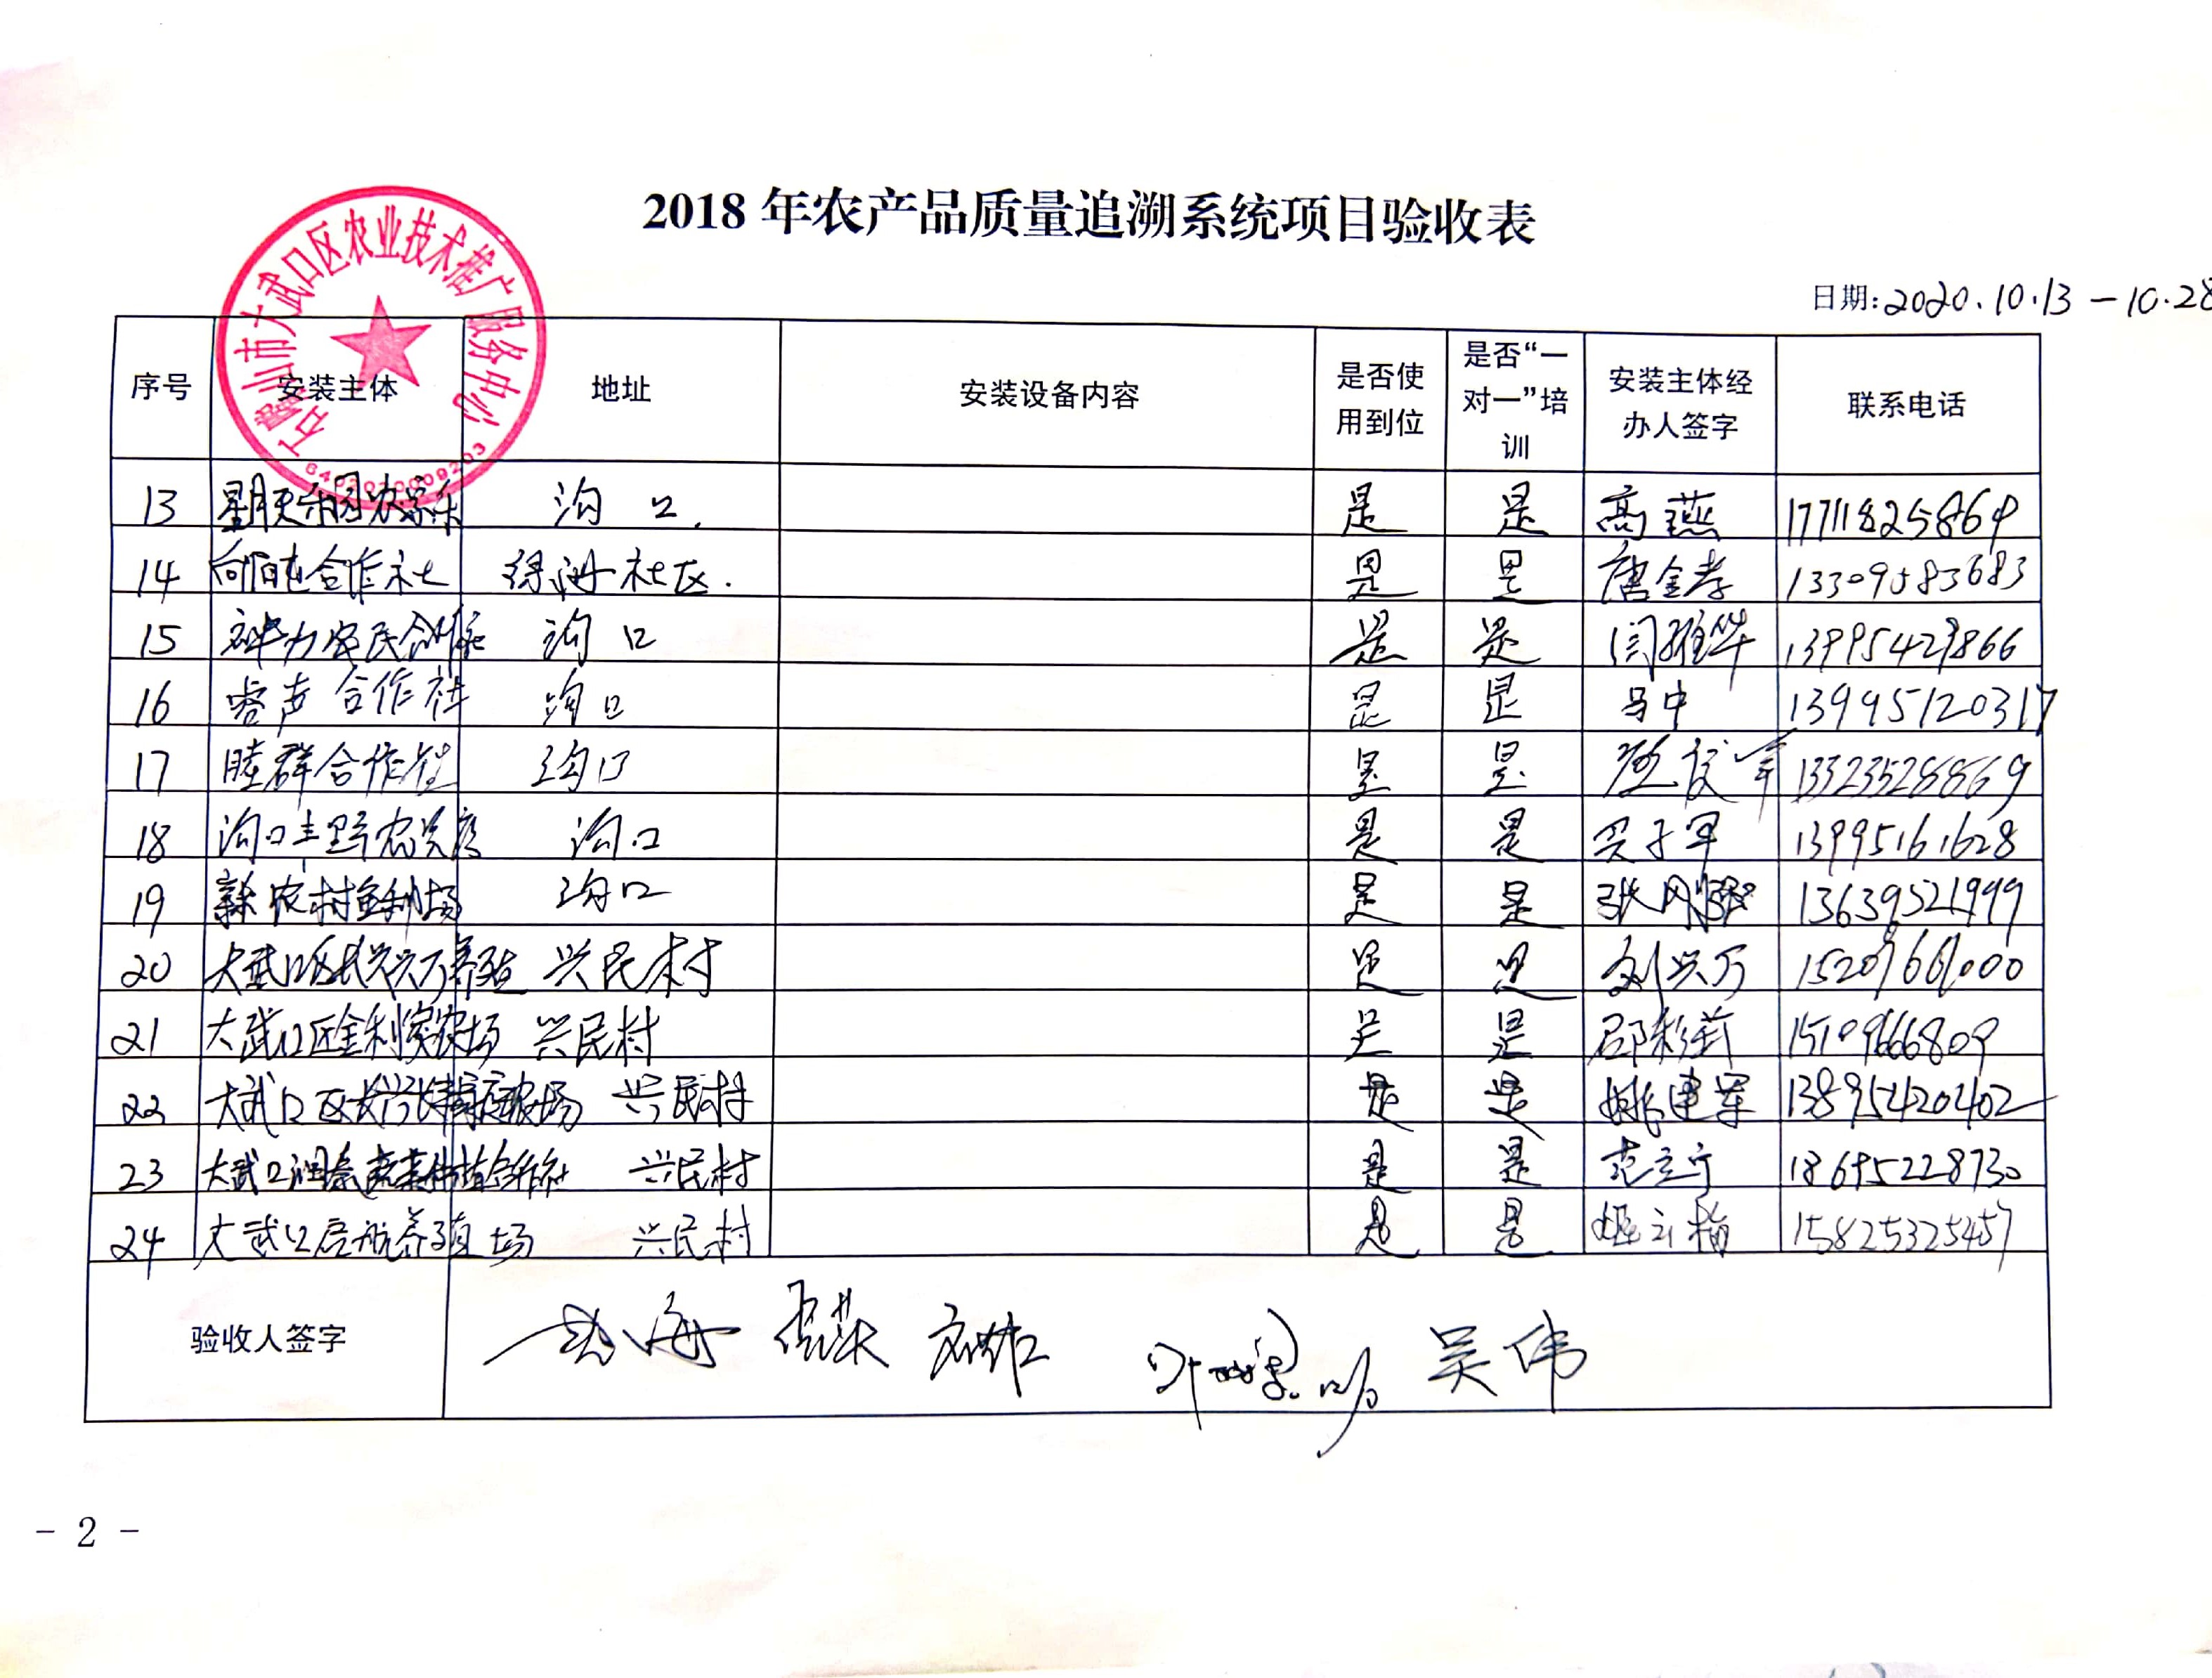 2018年农产品质量追溯系统项目验收表
石嘴山市大武口区农业技术推广服务中心
6402020009203
日期:2020.10.13—10.28
序号 安装主体 地址 安装设备内容 是否使用到位 是否“一对一”培训 安装主体经办人签字 联系电话
13 星月天乐园农家乐 沟口. 是 是 高燕 17711825869
14 向阳屯合作社 绿洲社区. 是 是 唐金孝 13309583683
15 神力农民合作社 沟口 是 是 闫雅华 13995429866
16 睿声合作社 沟口 是 是 马中 13995120317
17 睦群合作社 沟口 是 是 13323528869
18 沟口 沟口 是 是 买子军 13995161628
19 新农村 沟口 是 是 张 13639521999
20 大武口区 养殖 兴民村 是 是 刘兴万 15209661000
21 大武口区金利家农场 兴民村 是 是 邵彩莉 15109666809
22 大武口区 家庭农场 兴民村 是 是 姚建军 13895420402
23 大武口 蔬菜种植合作社 兴民村 是 是 范立宁 18695228730
24 大武口启航养殖场 兴民村 是 是 15825325457
验收人签字 吴伟
- 2 -